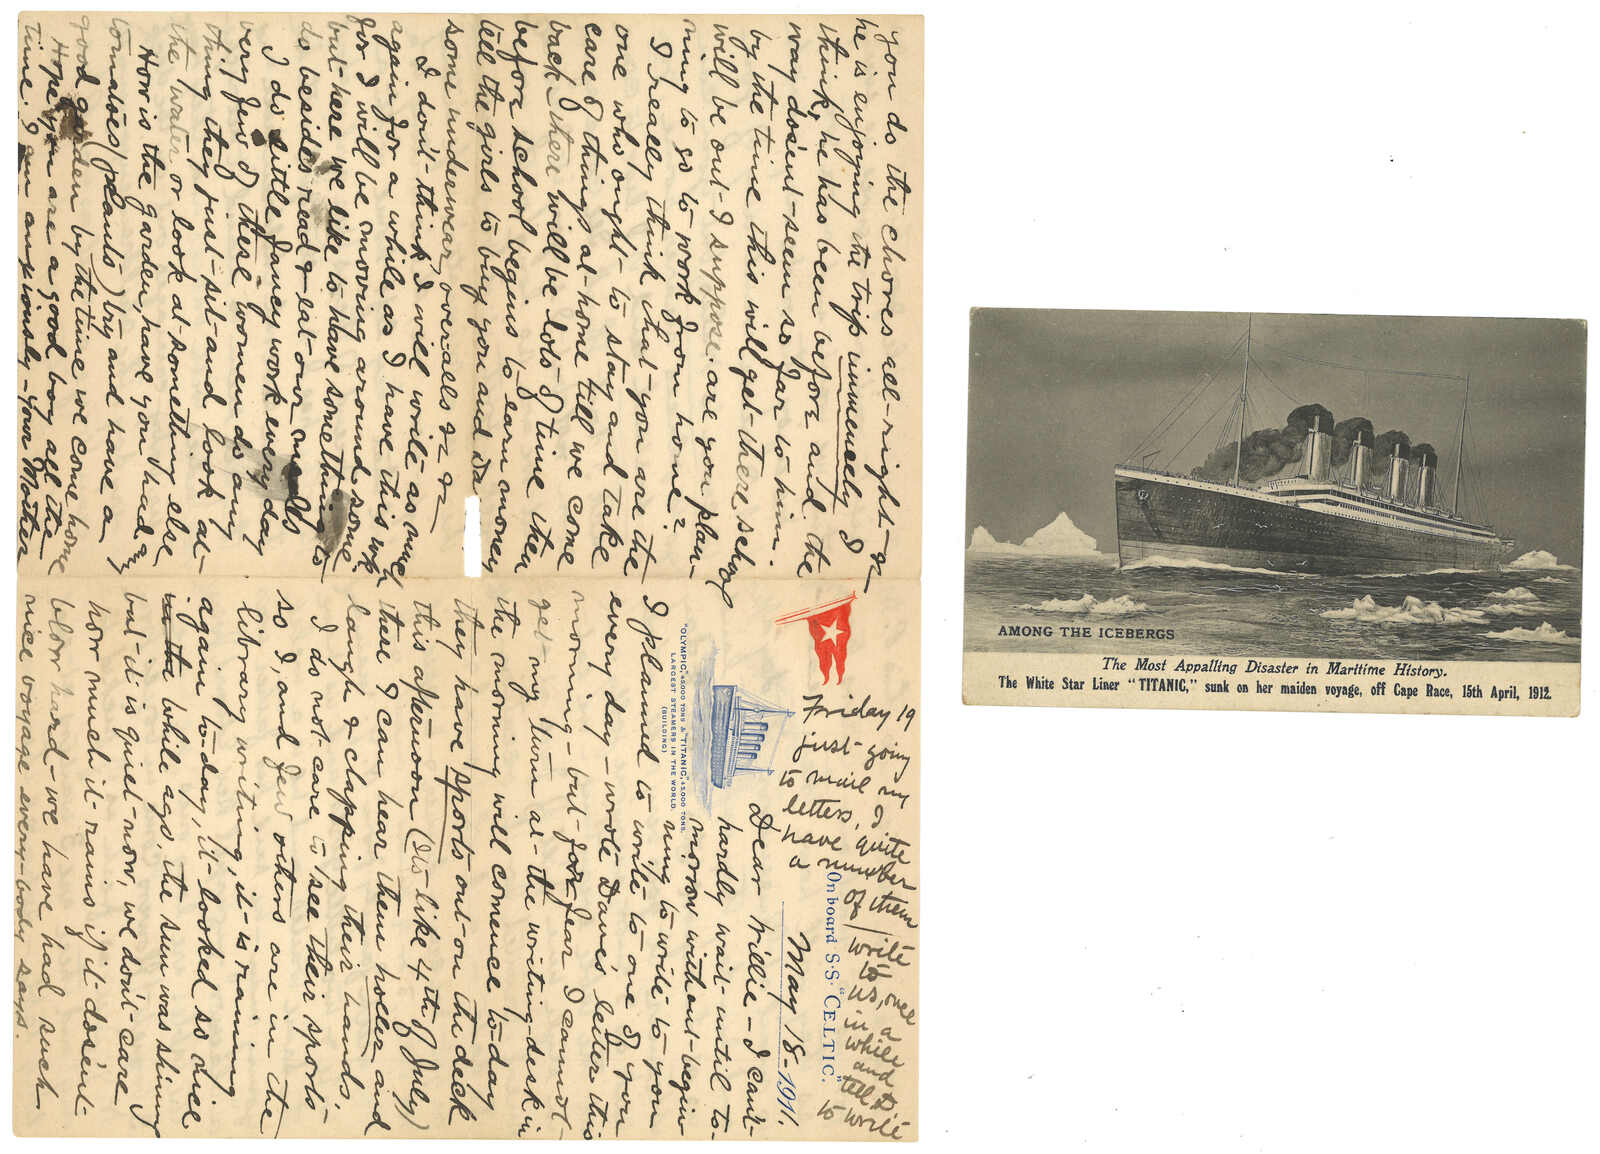 Friday 19
just going
to mail my
letters, I
have quite
a number
of them
write
to
us, once
in a
while
and
tell D.
to write
On board S.S. "CELTIC."
"OLYMPIC," 45,000 TONS & "TITANIC," 45,000 TONS.
LARGEST STEAMERS IN THE WORLD
(BUILDING)
May 18-1911.
Dear Willie - I can't-
hardly wait until to-
morrow without begin
ning to write to you
I planned to write to one of you
every day - wrote Dave's letter this
morning - but for fear I cannot-
get my turn at the writing-desk in
the morning will comence to-day
they have sports out on the deck
this afternoon (Its like 4th of July)
there I can hear them holler and
laugh & clapping their hands.
I do not care to see their sports
so I, and few others are in the
librrary writing, it is raining
again to-day, it looked so nice
while ago, the sun was shining
but it is quiet now, we don't care
how much it rains if it dosent-
blow hard - we have had such
nice voyage every-body says.
you do the chores all-right &
he is enjoying the trip immencely I
think, he has been before and the
way dosent seem so far to him.
by the time this will get there school
will be out I suppose. are you plan-
ning to go to work from home?
I really think that you are the
one who ought to stay and take
care of things at home till we come
back, there will be lots of time then
before school begins to earn money
tell the girls to buy you and Da
some underwear, overalls &c
I don't think I will write as much
again for a while as I have this wk
for I will be moving around some
but here we like to have something to
do besides read & eat our meals
I do little fancy work every day
very few of these women do any
thing they just sit and look at
the water or look at something else
How is the garden, have you had any
tomatoes (plants) try and have a
good garden by the time we come home
Hope you are a good boy all the
time. I am anxiously - your Mother
AMONG THE ICEBERGS
The Most Appalling Disaster in Maritime History.
The White Star Liner "TITANIC," sunk on her maiden voyage, off Cape Race, 15th April, 1912.